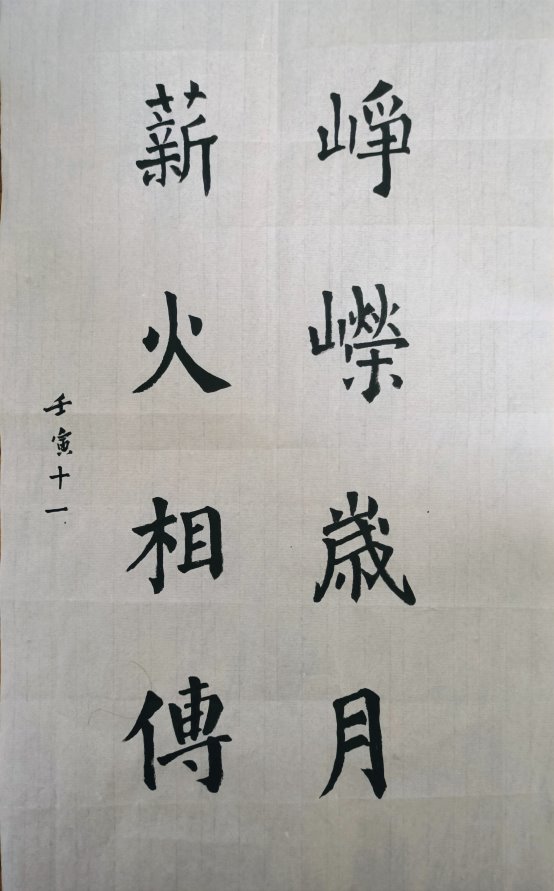 崢嶸歲月
薪火相傳
壬寅十一